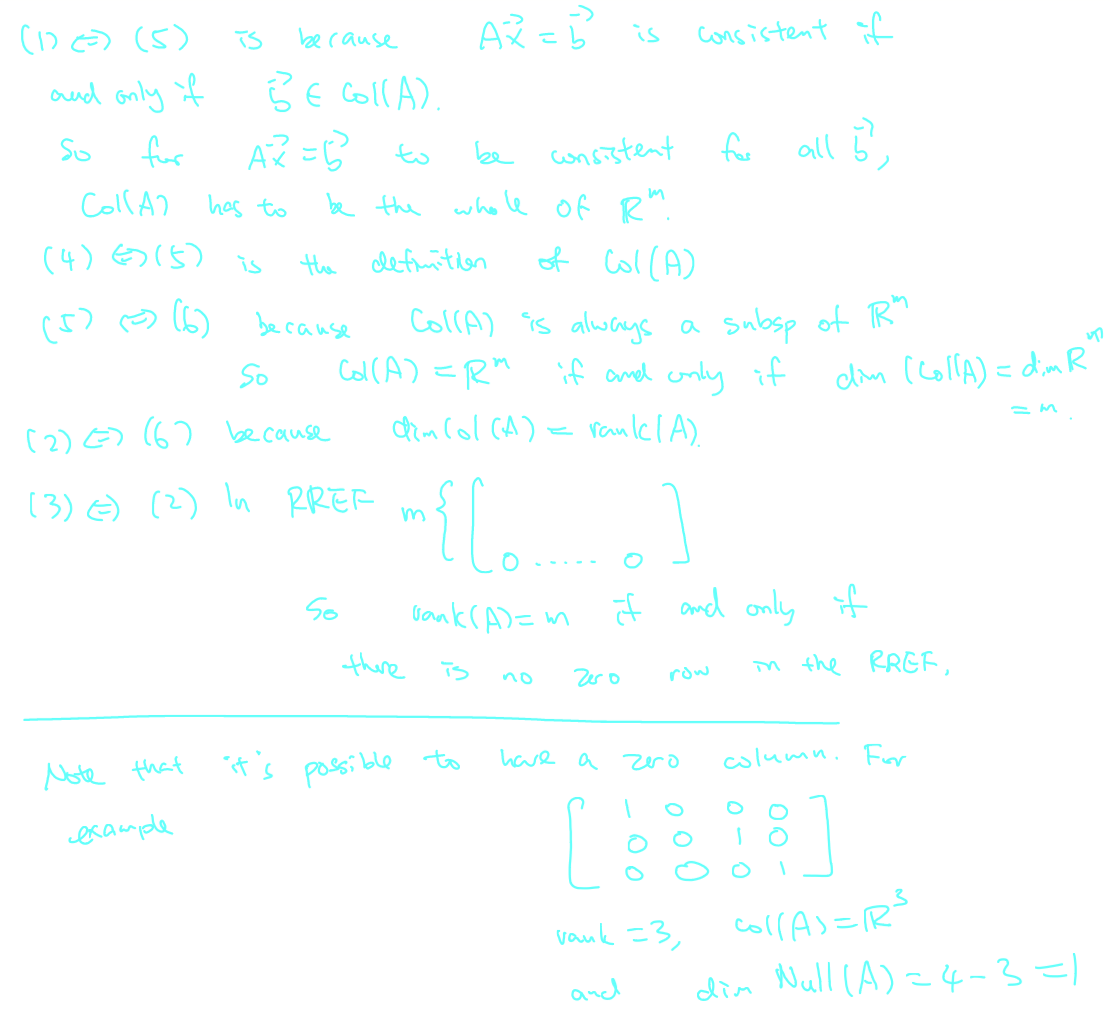 (1) ⇔ (5) is because A\vec{x} = \vec{b} is consistent if
and only if \vec{b} ∈ Col(A).
So for A\vec{x} = \vec{b} to be consistent for all \vec{b},
Col(A) has to be the whole of ℝ^m.
(4) ⇔ (5) is the definition of Col(A)
(5) ⇔ (6) because Col(A) is always a subsp of ℝ^m
So Col(A) = ℝ^m if and only if dim (Col(A) = dim ℝ^m
= m.
(2) ⇔ (6) because dim Col(A) = rank(A).
(3) ⇔ (2) In RREF m { [
0 ...... 0 ]
So rank(A) = m if and only if
there is no zero row in the RREF.
Note that it's possible to have a zero column. For
example
[ 1 0 0 0
0 0 1 0
0 0 0 1 ]
rank = 3, Col(A) = ℝ^3
and dim Null(A) = 4 - 3 = 1